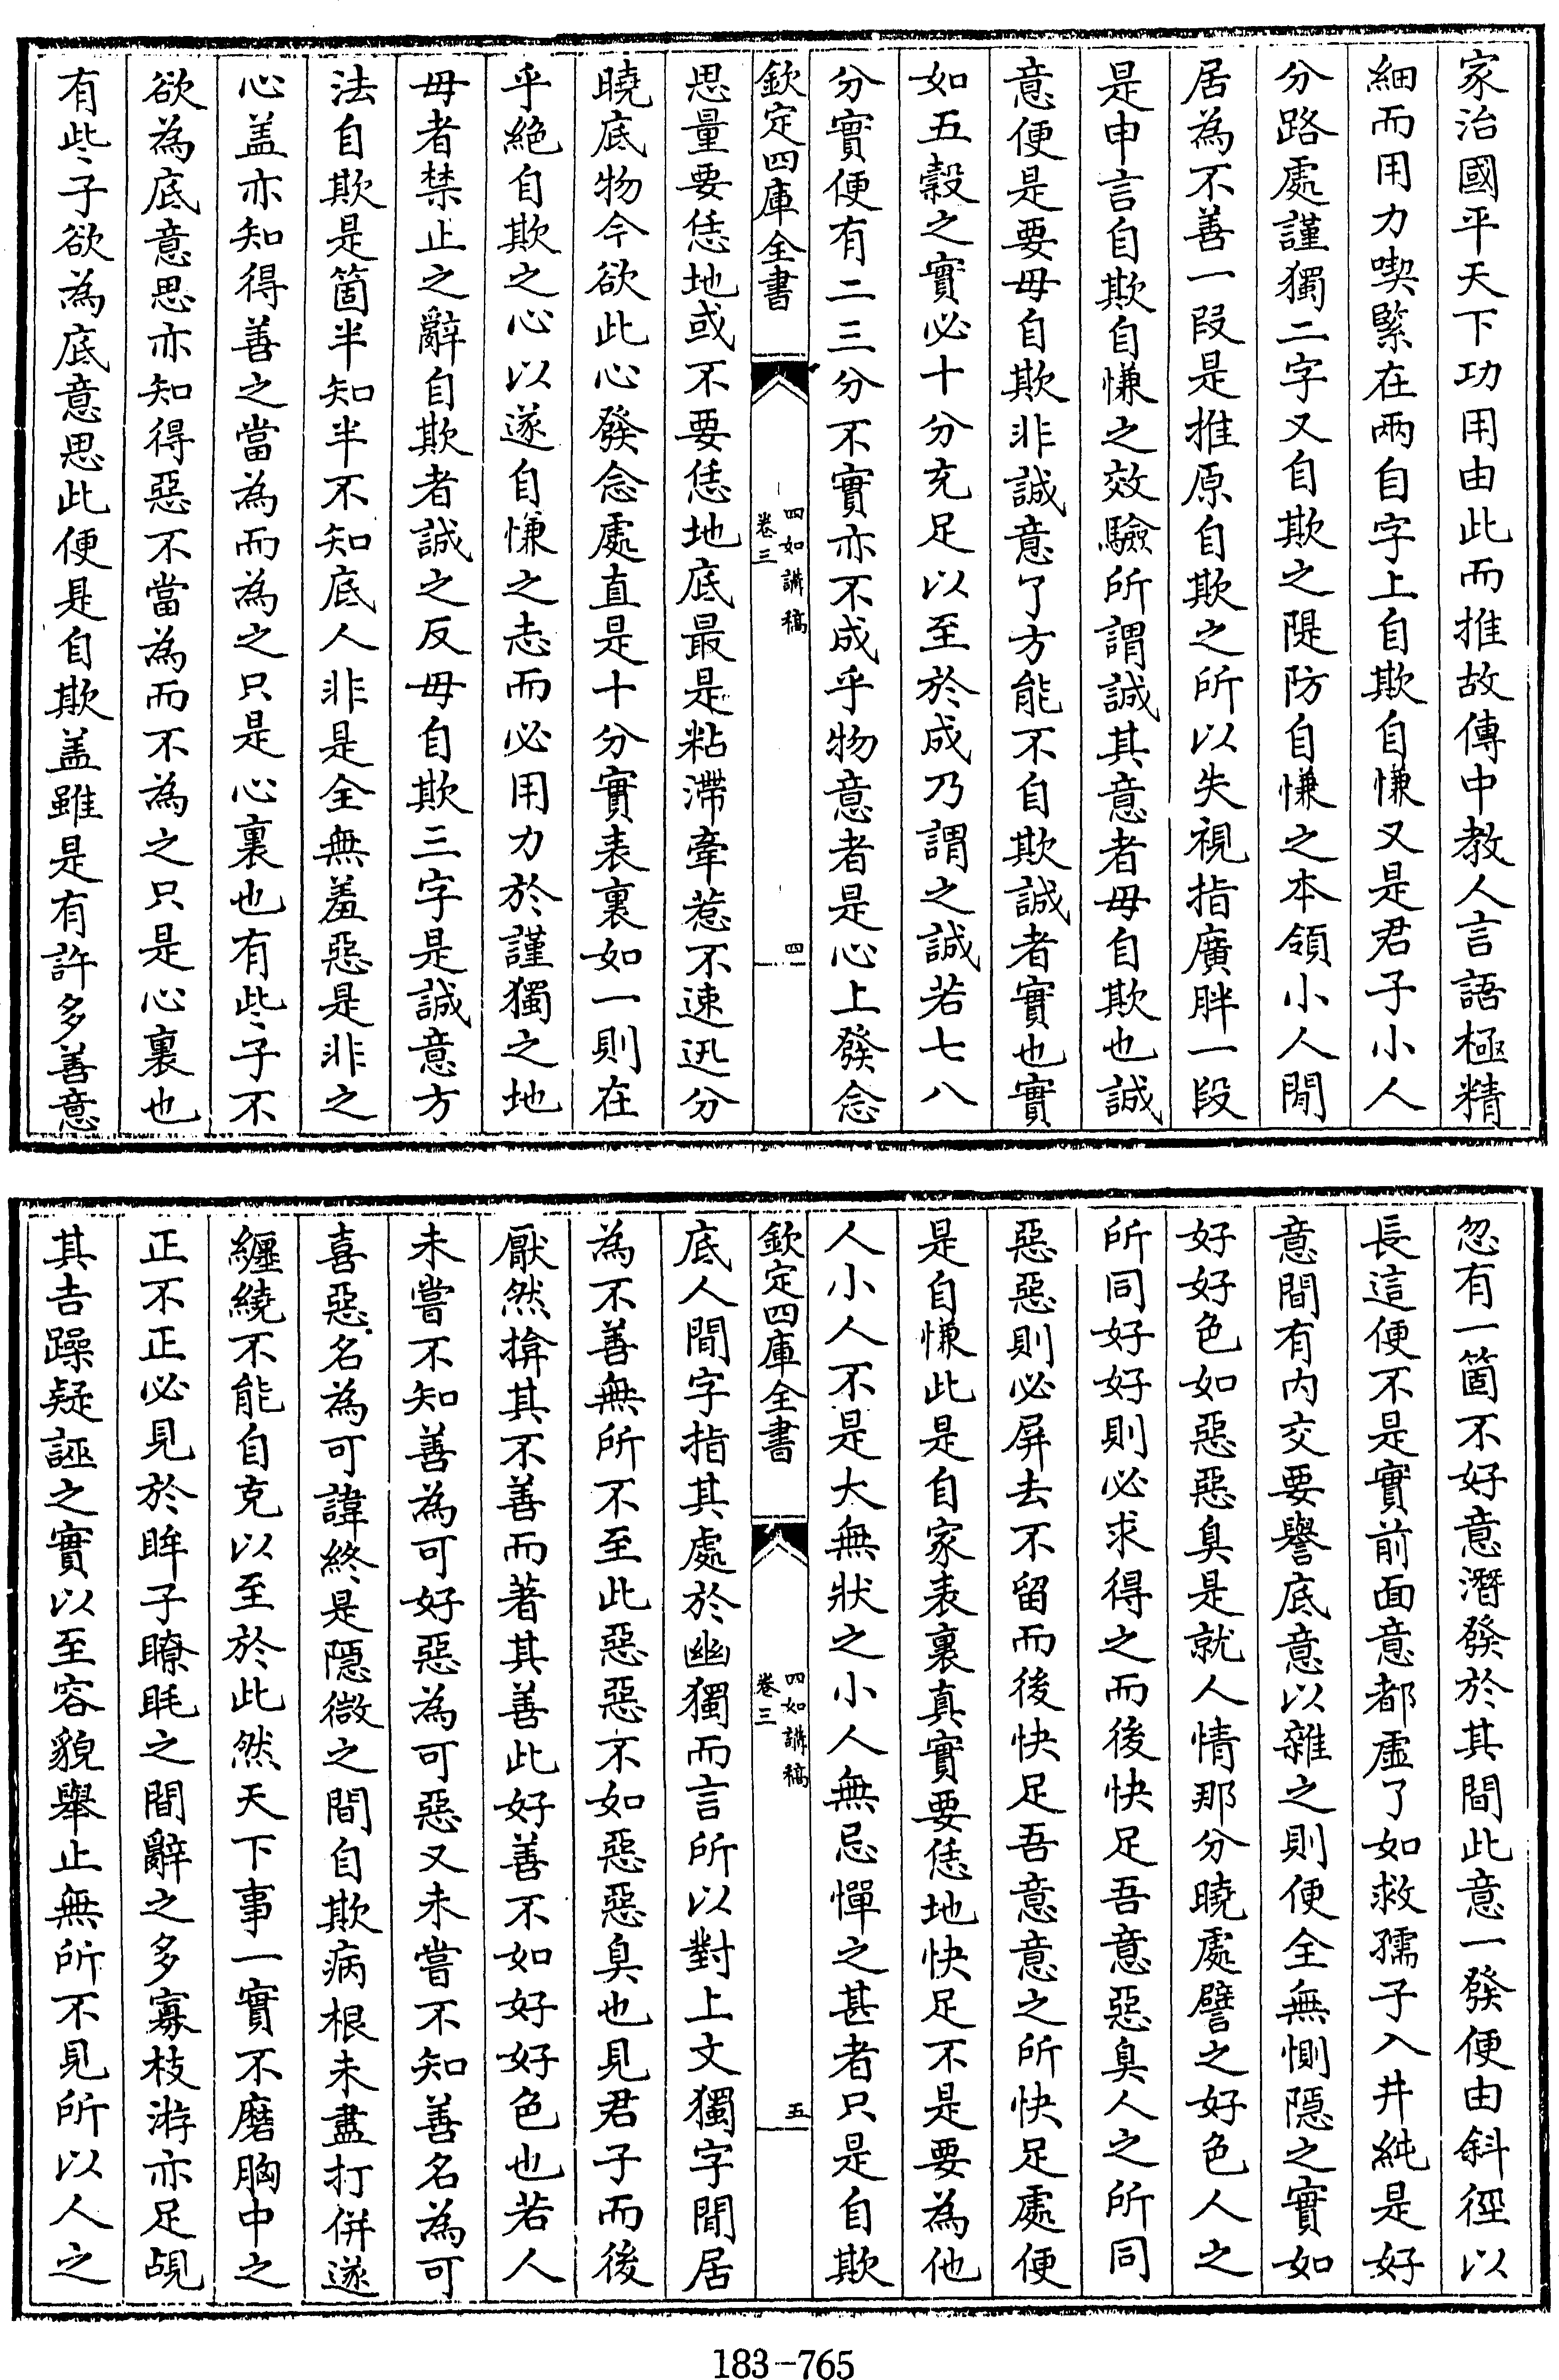 家治國平天下功用由此而推故傳中教人言語極精
細而用力喫緊在兩自字上自欺自慊又是君子小人
分路處謹獨二字又自欺之隄防自慊之本領小人閒
居為不善一段是推原自欺之所以失視指廣胖一段
是申言自欺自慊之效驗所謂誠其意者毋自欺也誠
意便是要毋自欺非誠意了方能不自欺誠者實也實
如五穀之實必十分充足以至於成乃謂之誠若七八
分實便有二三分不實亦不成乎物意者是心上發念
欽定四庫全書
四如講稿
卷三
四
思量要恁地或不要恁地底最是粘滯牽惹不速迅分
曉底物今欲此心發念處直是十分實表裏如一則在
乎絕自欺之心以遂自慊之志而必用力於謹獨之地
毋者禁止之辭自欺者誠之反毋自欺三字是誠意方
法自欺是箇半知半不知底人非是全無羞惡是非之
心盖亦知得善之當為而為之只是心裏也有些子不
欲為底意思亦知得惡不當為而不為之只是心裏也
有些子欲為底意思此便是自欺盖雖是有許多善意
忽有一箇不好意潛發於其間此意一發便由斜徑以
長這便不是實前面意都虛了如救孺子入井純是好
意間有内交要譽底意以雜之則便全無惻隱之實如
好好色如惡惡臭是就人情那分曉處譬之好色人之
所同好好則必求得之而後快足吾意惡臭人之所同
惡惡則必屏去不留而後快足吾意意之所快足處便
是自慊此是自家表裏真實要恁地快足不是要為他
人小人不是大無狀之小人無忌憚之甚者只是自欺
欽定四庫全書
四如講稿
卷三
五
底人間字指其處於幽獨而言所以對上文獨字閒居
為不善無所不至此惡惡不如惡惡臭也見君子而後
厭然揜其不善而著其善此好善不如好好色也若人
未嘗不知善為可好惡為可惡又未嘗不知善名為可
喜惡名為可諱終是隱微之間自欺病根未盡打併遂
纏繞不能自克以至於此然天下事一實不磨胸中之
正不正必見於眸子瞭眊之間辭之多寡枝游亦足覘
其吉躁疑誣之實以至容貌舉止無所不見所以人之
183-765